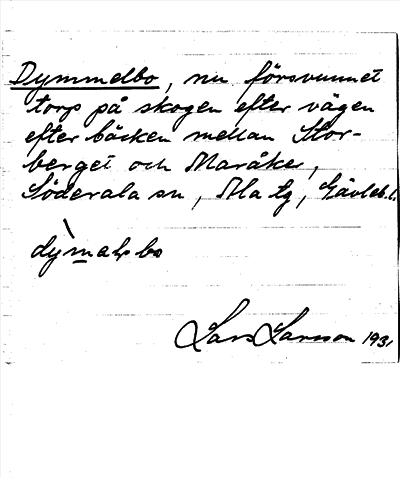 Dymmelbo, nu försvunnet
torp på skogen efter vägen
efter bäcken mellan Stor-
berget och Maråker,
Söderala sn, Ala tg, Gävleb. l.
Lars Larsson 193